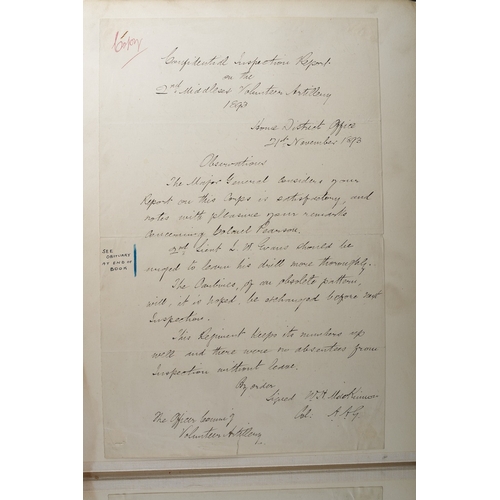 Copy
Confidential Inspection Report
on the
2nd Middlesex Volunteer Artillery
1893
Home District Office
21st November 1893
Observations
The Major General considers your
Report on this Corps is satisfactory, and
notes with pleasure your remarks
concerning Colonel Pearson.
2nd Lieut L. H. Evans should be
urged to learn his drill more thoroughly.
The Carbines, of an obsolete pattern,
will, it is hoped, be exchanged before next
Inspection.
This Regiment keeps its numbers up
well and there were no absentees from
Inspection without leave.
By order,
Signed W. H. MacKinnon
Col. A.A.G.
The Officer Commg
Volunteer Artillery
SEE
OBITUARY
AT END OF
BOOK